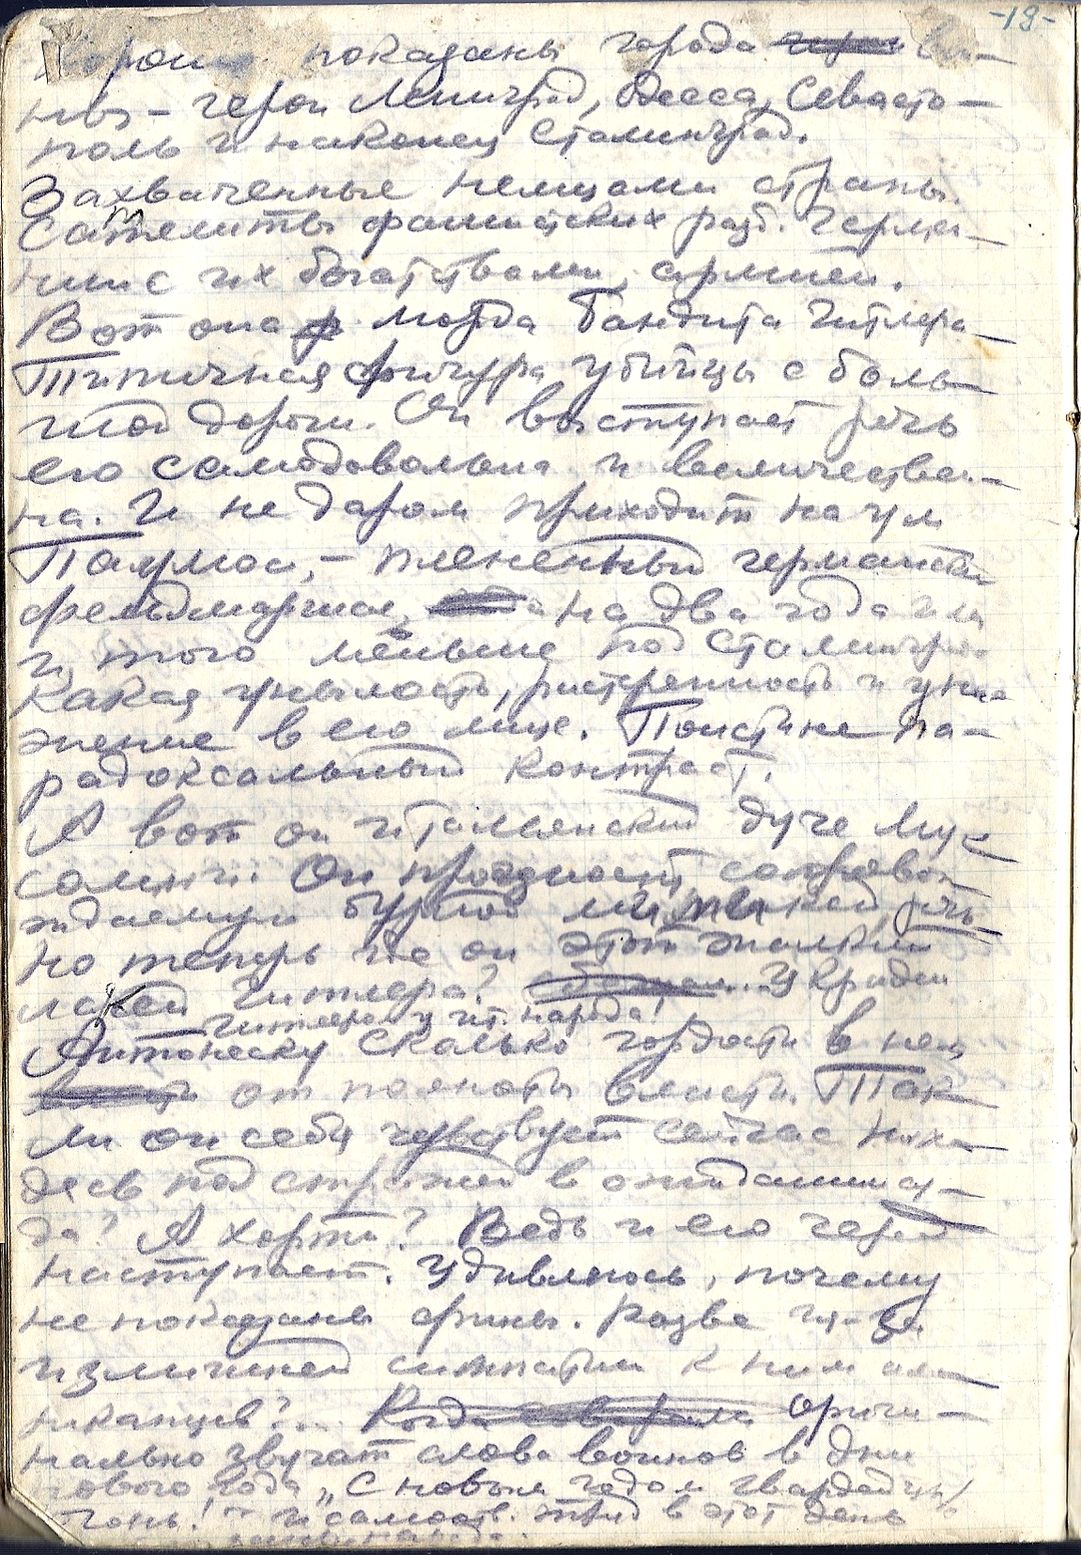 -19-
Хорошо показаны города
ны - герои Ленинград, Одесса, Севасто-
поль и наконец Сталинград.
Захваченные немцами страны.
Сателлиты фашистских разб. Герма-
нии с их богатствами, армией.
Вот она морда бандита Гитлера
Типичная фигура убийцы с боль-
шой дороги. Он выступает речь
его самодовольна и величествен-
на. И не даром приходит на ум
Паулюс, - плененный германский
фельдмаршал, на два года или
и того меньше под Сталинград
Какая унылость, растерянность и уни-
жение в его лице. Поистине па-
радоксальный контраст.
А вот он итальянский дуче Мус-
солини. Он произносит сопрово-
ждаемую бурной мимикой, речь
но теперь где он этот жалкий
лакей Гитлера? Украден
Гитлером у ит. народа!
Антонеску Сколько гордости в нем
от полноты власти. Так
ли он себя чувствует сейчас нахо-
дясь под стражей в ожидании су-
да? А Хорти? Ведь и его черед
наступает. Удивляюсь, почему
не показаны финны. Разве из-за
излишней симпатии к ним аме-
риканцев?.. Ориги-
нально звучат слова воинов в дни
нового года „С новым годом гвардейцы!
Огонь!" - и самоотв. труд в этот день